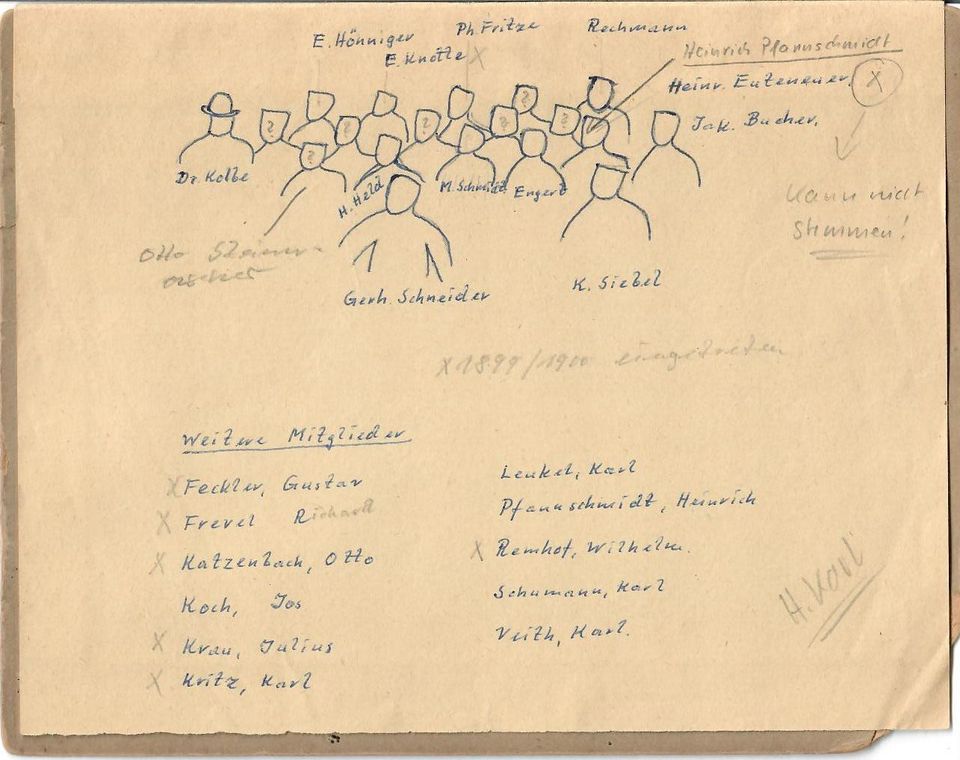 E. Hönniger
Ph. Fritze
Rechmann
E. Knotte X
Heinrich Pfannschmidt
Heinr. Euteneuer. X
Jak. Bucher.
? ? ? ? ? ? ?
Dr. Kolbe
H. Held
M. Schmidt
Engert
Kann nicht
Stimmen!
Otto
Gerh. Schneider
K. Siebel
X 1899/1900 eingetreten
Weitere Mitglieder
X Feckler, Gustav
X Frevel Richard
X Katzenbach, Otto
Koch, Jos
X Krau, Julius
X Kritz, Karl
Leukel, Karl
Pfannschmidt, Heinrich
X Remhof, Wilhelm.
Schumann, Karl
Veith, Karl.
H. Karl